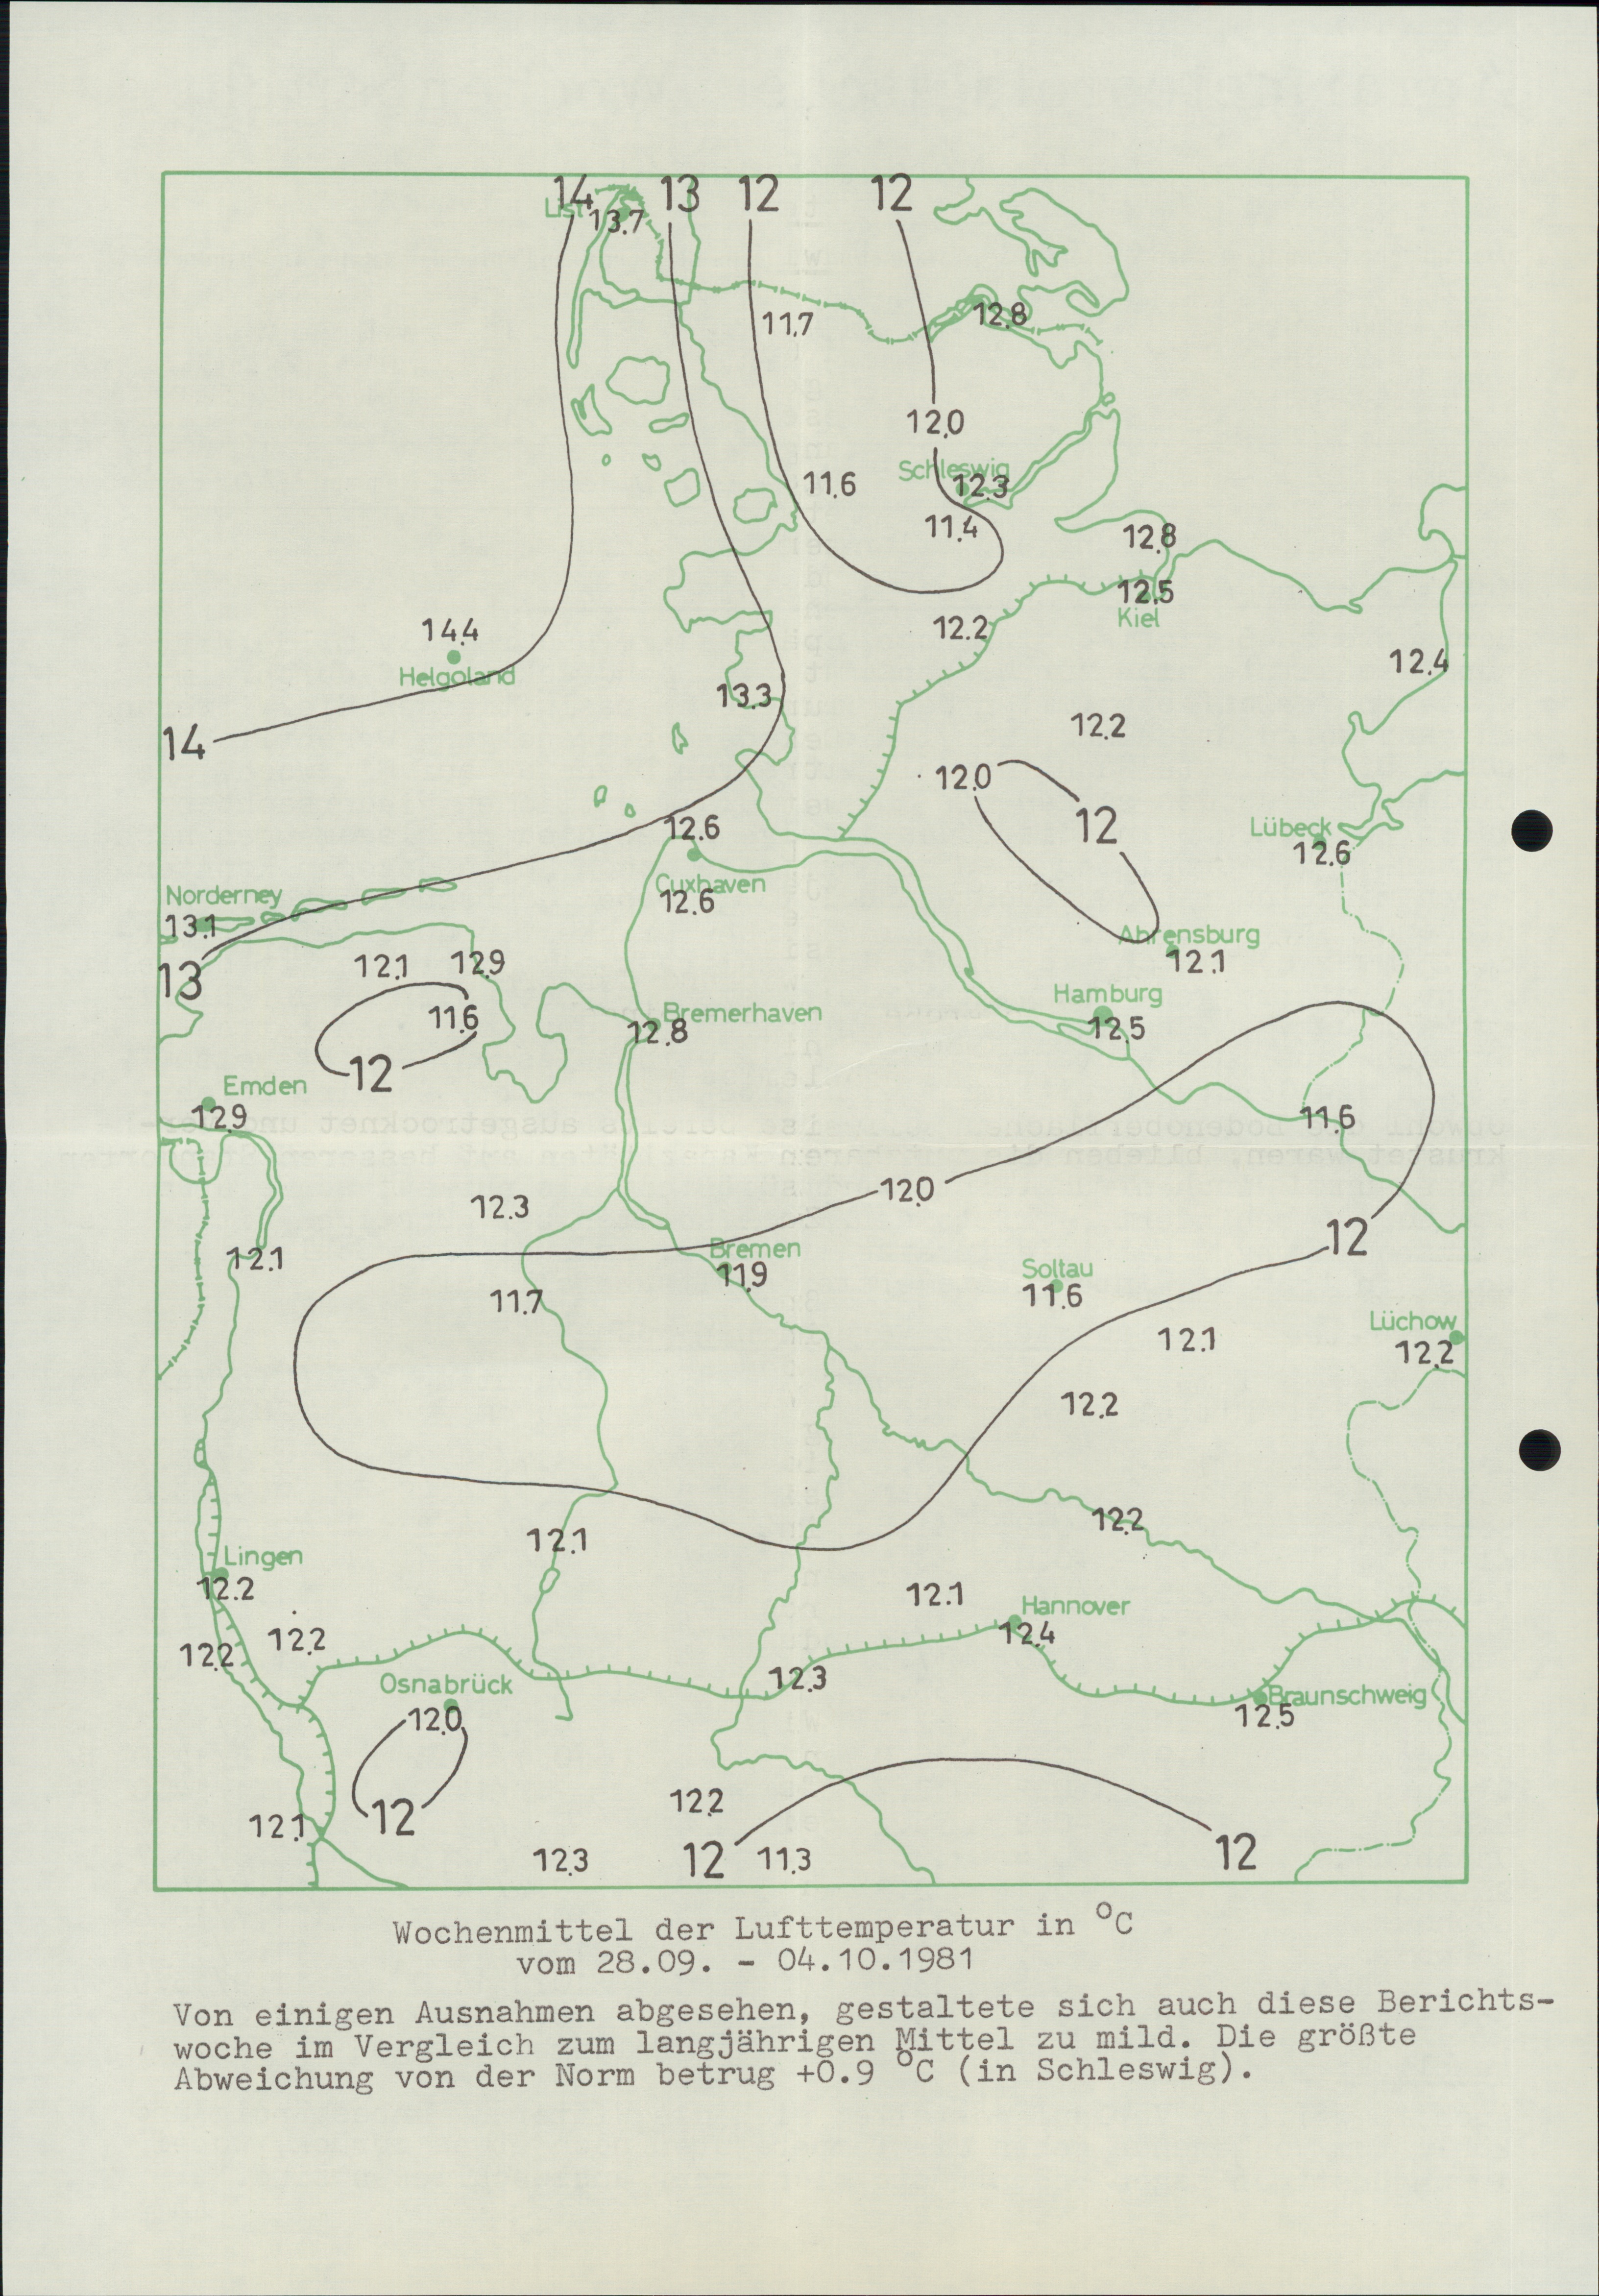 14 13 12 12
List
13.7
12.8
11.7
12.0
Schleswig
11.6 12.3
11.4
12.8
12.5
Kiel
12.2
14.4
Helgoland
12.4
13.3
12.2
14
12.0
12
12.6
Lübeck
12.6
Cuxhaven
12.6
Norderney
13.1
Ahrensburg
12.1
12.1 12.9
13
Hamburg
12.5
11.6
Bremerhaven
12.8
12
Emden
12.9
11.6
12.0
12.3
12
12.1
Bremen
11.9
Soltau
11.6
11.7
Lüchow
12.2
12.1
12.2
12.2
12.1
Lingen
12.2
12.1
Hannover
12.4
12.2
12.2
12.3
Osnabrück
12.0
Braunschweig
12.5
12.2
12
12.1
12 11.3
12
12.3
Wochenmittel der Lufttemperatur in °C
vom 28.09. - 04.10.1981
Von einigen Ausnahmen abgesehen, gestaltete sich auch diese Berichts-
woche im Vergleich zum langjährigen Mittel zu mild. Die größte
Abweichung von der Norm betrug +0.9 °C (in Schleswig).